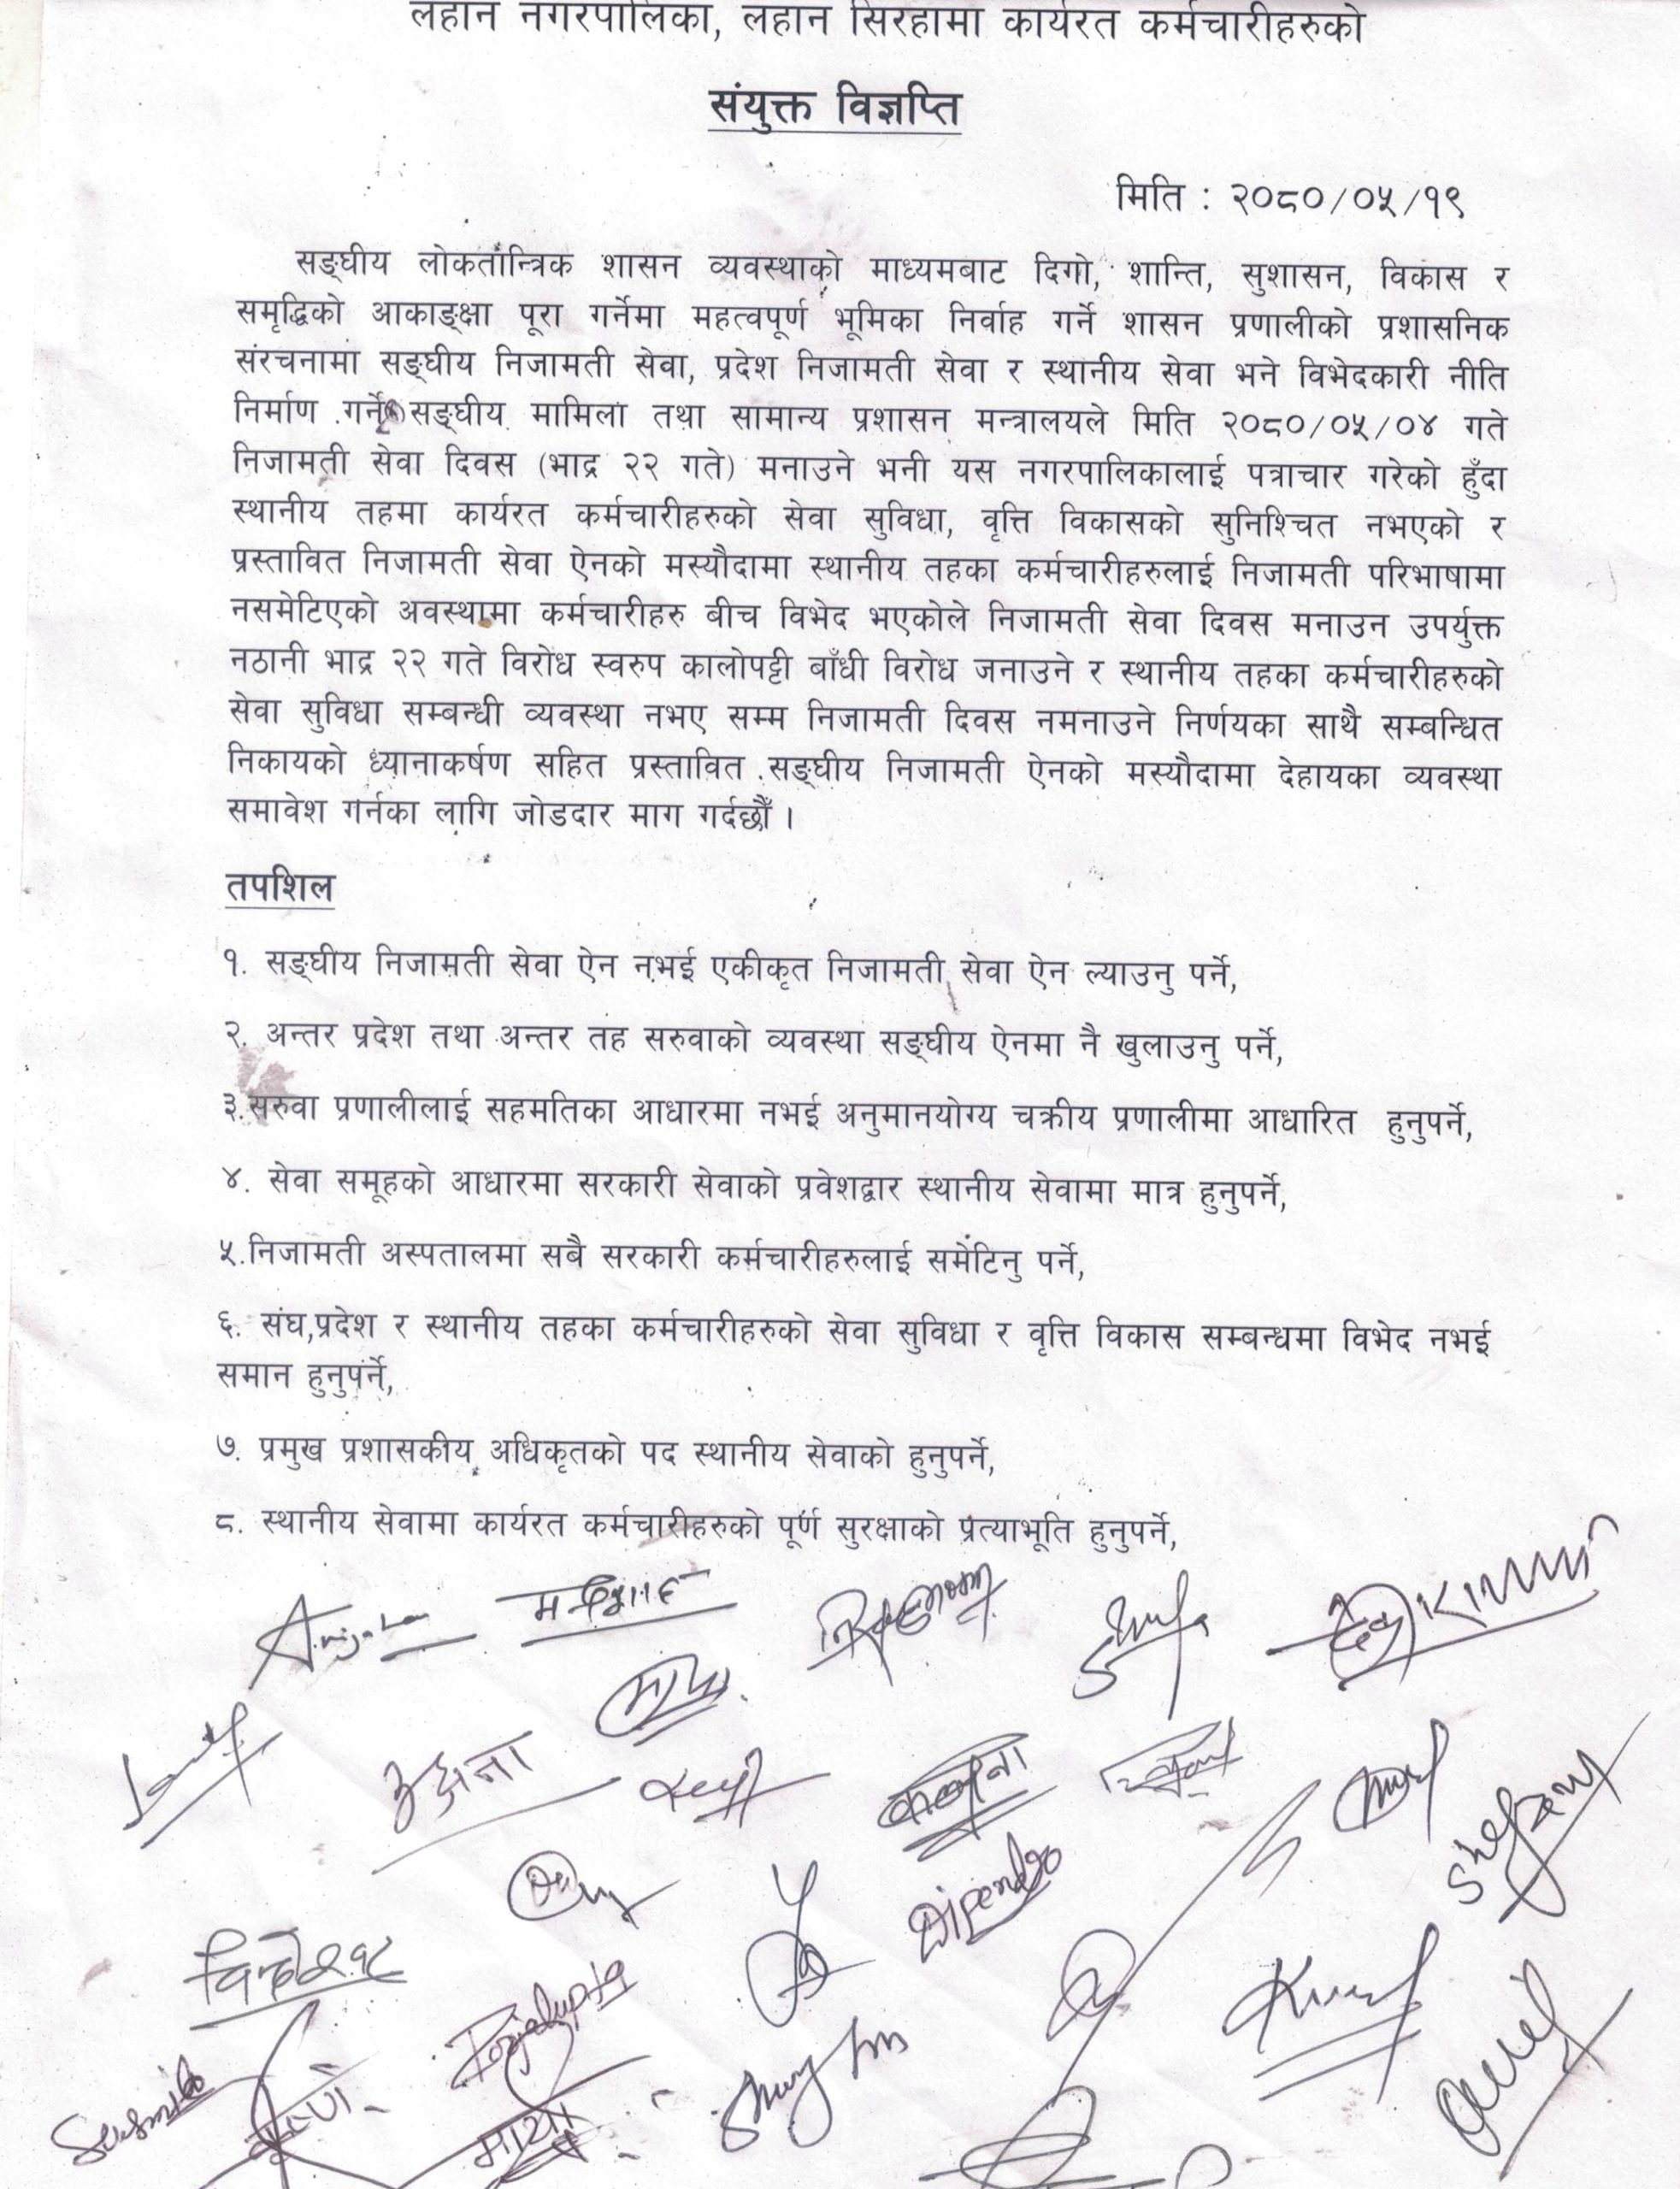 लहान नगरपालिका, लहान सिरहामा कार्यरत कर्मचारीहरुको
संयुक्त विज्ञप्ति
मिति : २०८०/०५/१९
सङ्घीय लोकतान्त्रिक शासन व्यवस्थाको माध्यमबाट दिगो, शान्ति, सुशासन, विकास र
समृद्धिको आकाङ्क्षा पूरा गर्नेमा महत्वपूर्ण भूमिका निर्वाह गर्ने शासन प्रणालीको प्रशासनिक
संरचनामा सङ्घीय निजामती सेवा, प्रदेश निजामती सेवा र स्थानीय सेवा भने विभेदकारी नीति
निर्माण गर्ने सङ्घीय मामिला तथा सामान्य प्रशासन मन्त्रालयले मिति २०८०/०५/०४ गते
निजामती सेवा दिवस (भाद्र २२ गते) मनाउने भनी यस नगरपालिकालाई पत्राचार गरेको हुँदा
स्थानीय तहमा कार्यरत कर्मचारीहरुको सेवा सुविधा, वृत्ति विकासको सुनिश्चित नभएको र
प्रस्तावित निजामती सेवा ऐनको मस्यौदामा स्थानीय तहका कर्मचारीहरुलाई निजामती परिभाषामा
नसमेटिएको अवस्थामा कर्मचारीहरु बीच विभेद भएकोले निजामती सेवा दिवस मनाउन उपर्युक्त
नठानी भाद्र २२ गते विरोध स्वरुप कालोपट्टी बाँधी विरोध जनाउने र स्थानीय तहका कर्मचारीहरुको
सेवा सुविधा सम्बन्धी व्यवस्था नभए सम्म निजामती दिवस नमनाउने निर्णयका साथै सम्बन्धित
निकायको ध्यानाकर्षण सहित प्रस्तावित सङ्घीय निजामती ऐनको मस्यौदामा देहायका व्यवस्था
समावेश गर्नका लागि जोडदार माग गर्दछौँ ।
तपशिल
१. सङ्घीय निजामती सेवा ऐन नभई एकीकृत निजामती सेवा ऐन ल्याउनु पर्ने,
२. अन्तर प्रदेश तथा अन्तर तह सरुवाको व्यवस्था सङ्घीय ऐनमा नै खुलाउनु पर्ने,
३.सरुवा प्रणालीलाई सहमतिका आधारमा नभई अनुमानयोग्य चक्रीय प्रणालीमा आधारित हुनुपर्ने,
४. सेवा समूहको आधारमा सरकारी सेवाको प्रवेशद्वार स्थानीय सेवामा मात्र हुनुपर्ने,
५.निजामती अस्पतालमा सबै सरकारी कर्मचारीहरुलाई समेटिनु पर्ने,
६. संघ,प्रदेश र स्थानीय तहका कर्मचारीहरुको सेवा सुविधा र वृत्ति विकास सम्बन्धमा विभेद नभई
समान हुनुपर्ने,
७. प्रमुख प्रशासकीय अधिकृतको पद स्थानीय सेवाको हुनुपर्ने,
८. स्थानीय सेवामा कार्यरत कर्मचारीहरुको पूर्ण सुरक्षाको प्रत्याभूति हुनुपर्ने,
कल्पना
Dipendra
Susmita